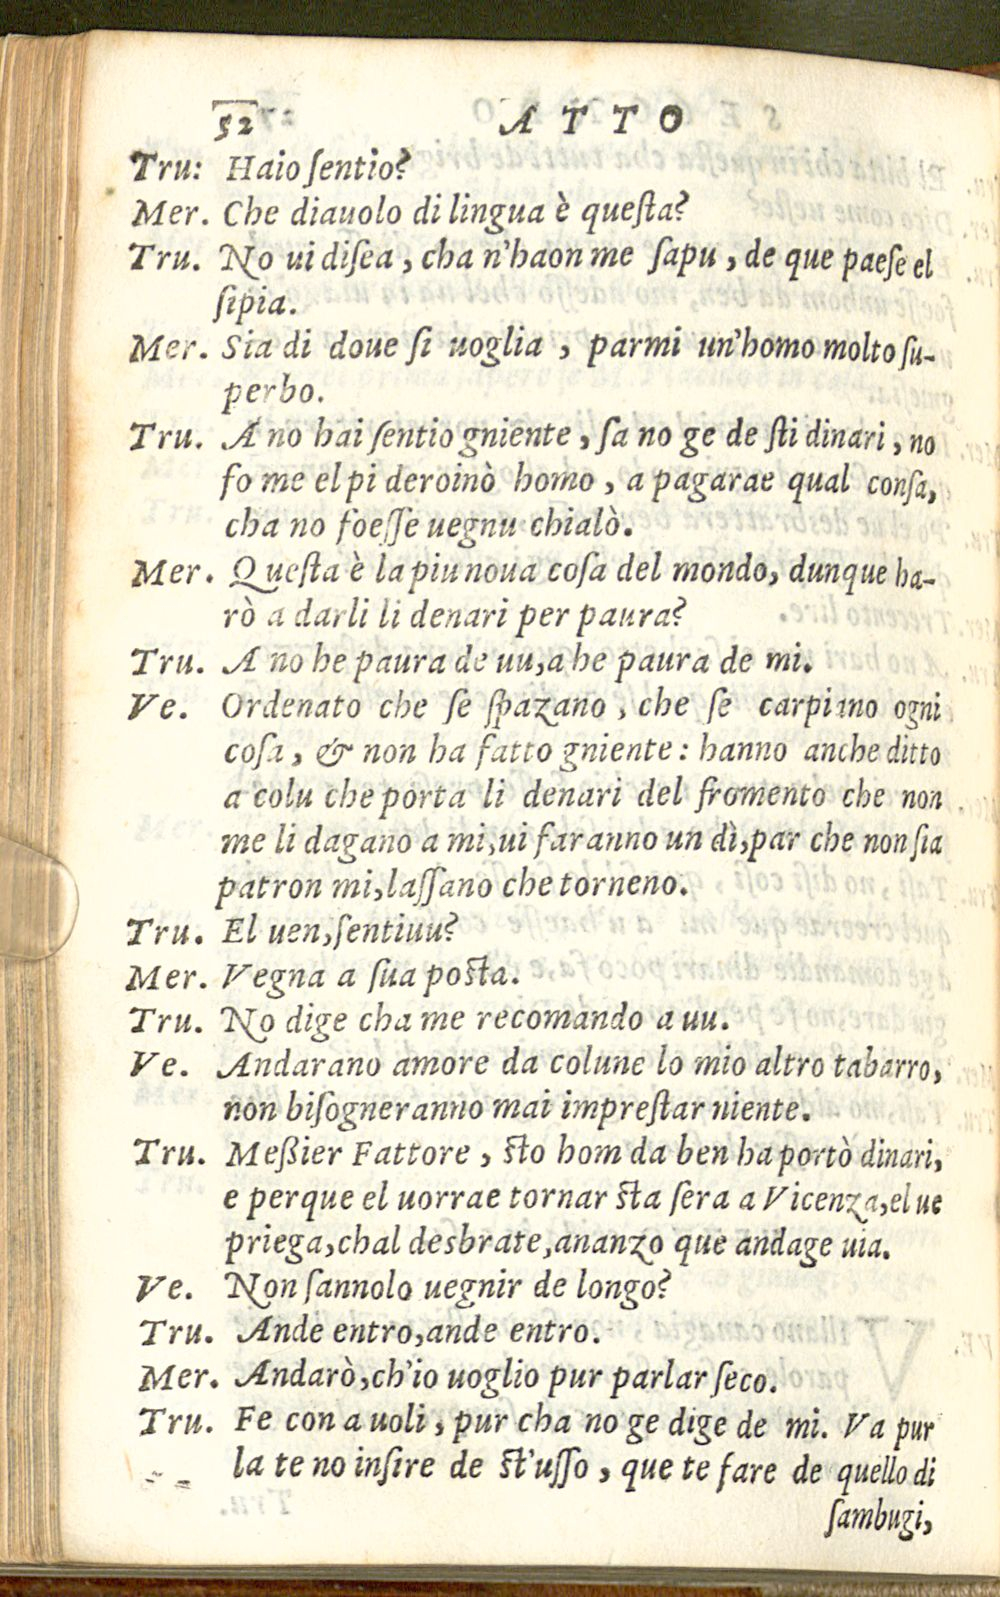 52 ATTO
Tru: Haio ſentio?
Mer. Che diauolo di lingua è queſta?
Tru. No ui diſea, cha n'haon me ſapu, de que paeſe el
ſipia.
Mer. Sia di doue ſi uoglia, parmi un'homo molto ſu-
perbo.
Tru. A no hai ſentio gniente, ſa no ge de ſti dinari, no
fo me el pi deroinò homo, a pagarae qual conſa,
cha no foeſſe uegnu chialò.
Mer. Queſta è la piu noua coſa del mondo, dunque ha-
rò a darli li denari per paura?
Tru. A no he paura de uu, a he paura de mi.
Ve. Ordenato che ſe ſpazano, che ſe carpimo ogni
coſa, & non ha fatto gniente: hanno anche ditto
a colu che porta li denari del fromento che non
me li dagano a mi, ui faranno un dì, par che non ſia
patron mi, laſſano che torneno.
Tru. El uen, ſentiuu?
Mer. Vegna a ſua poſta.
Tru. No dige cha me recomando a uu.
Ve. Andarano amore da colune lo mio altro tabarro,
non biſogneranno mai impreſtar niente.
Tru. Meßier Fattore, ſto hom da ben ha portò dinari,
e perque el uorrae tornar ſta ſera a Vicenza, el ue
priega, chal desbrate, ananzo que andage uia.
Ve. Non ſannolo uegnir de longo?
Tru. Ande entro, ande entro.
Mer. Andarò, ch'io uoglio pur parlar ſeco.
Tru. Fe con a uoli, pur cha no ge dige de mi. Va pur
la te no inſire de ſt'uſſo, que te fare de quello di
ſambugi,